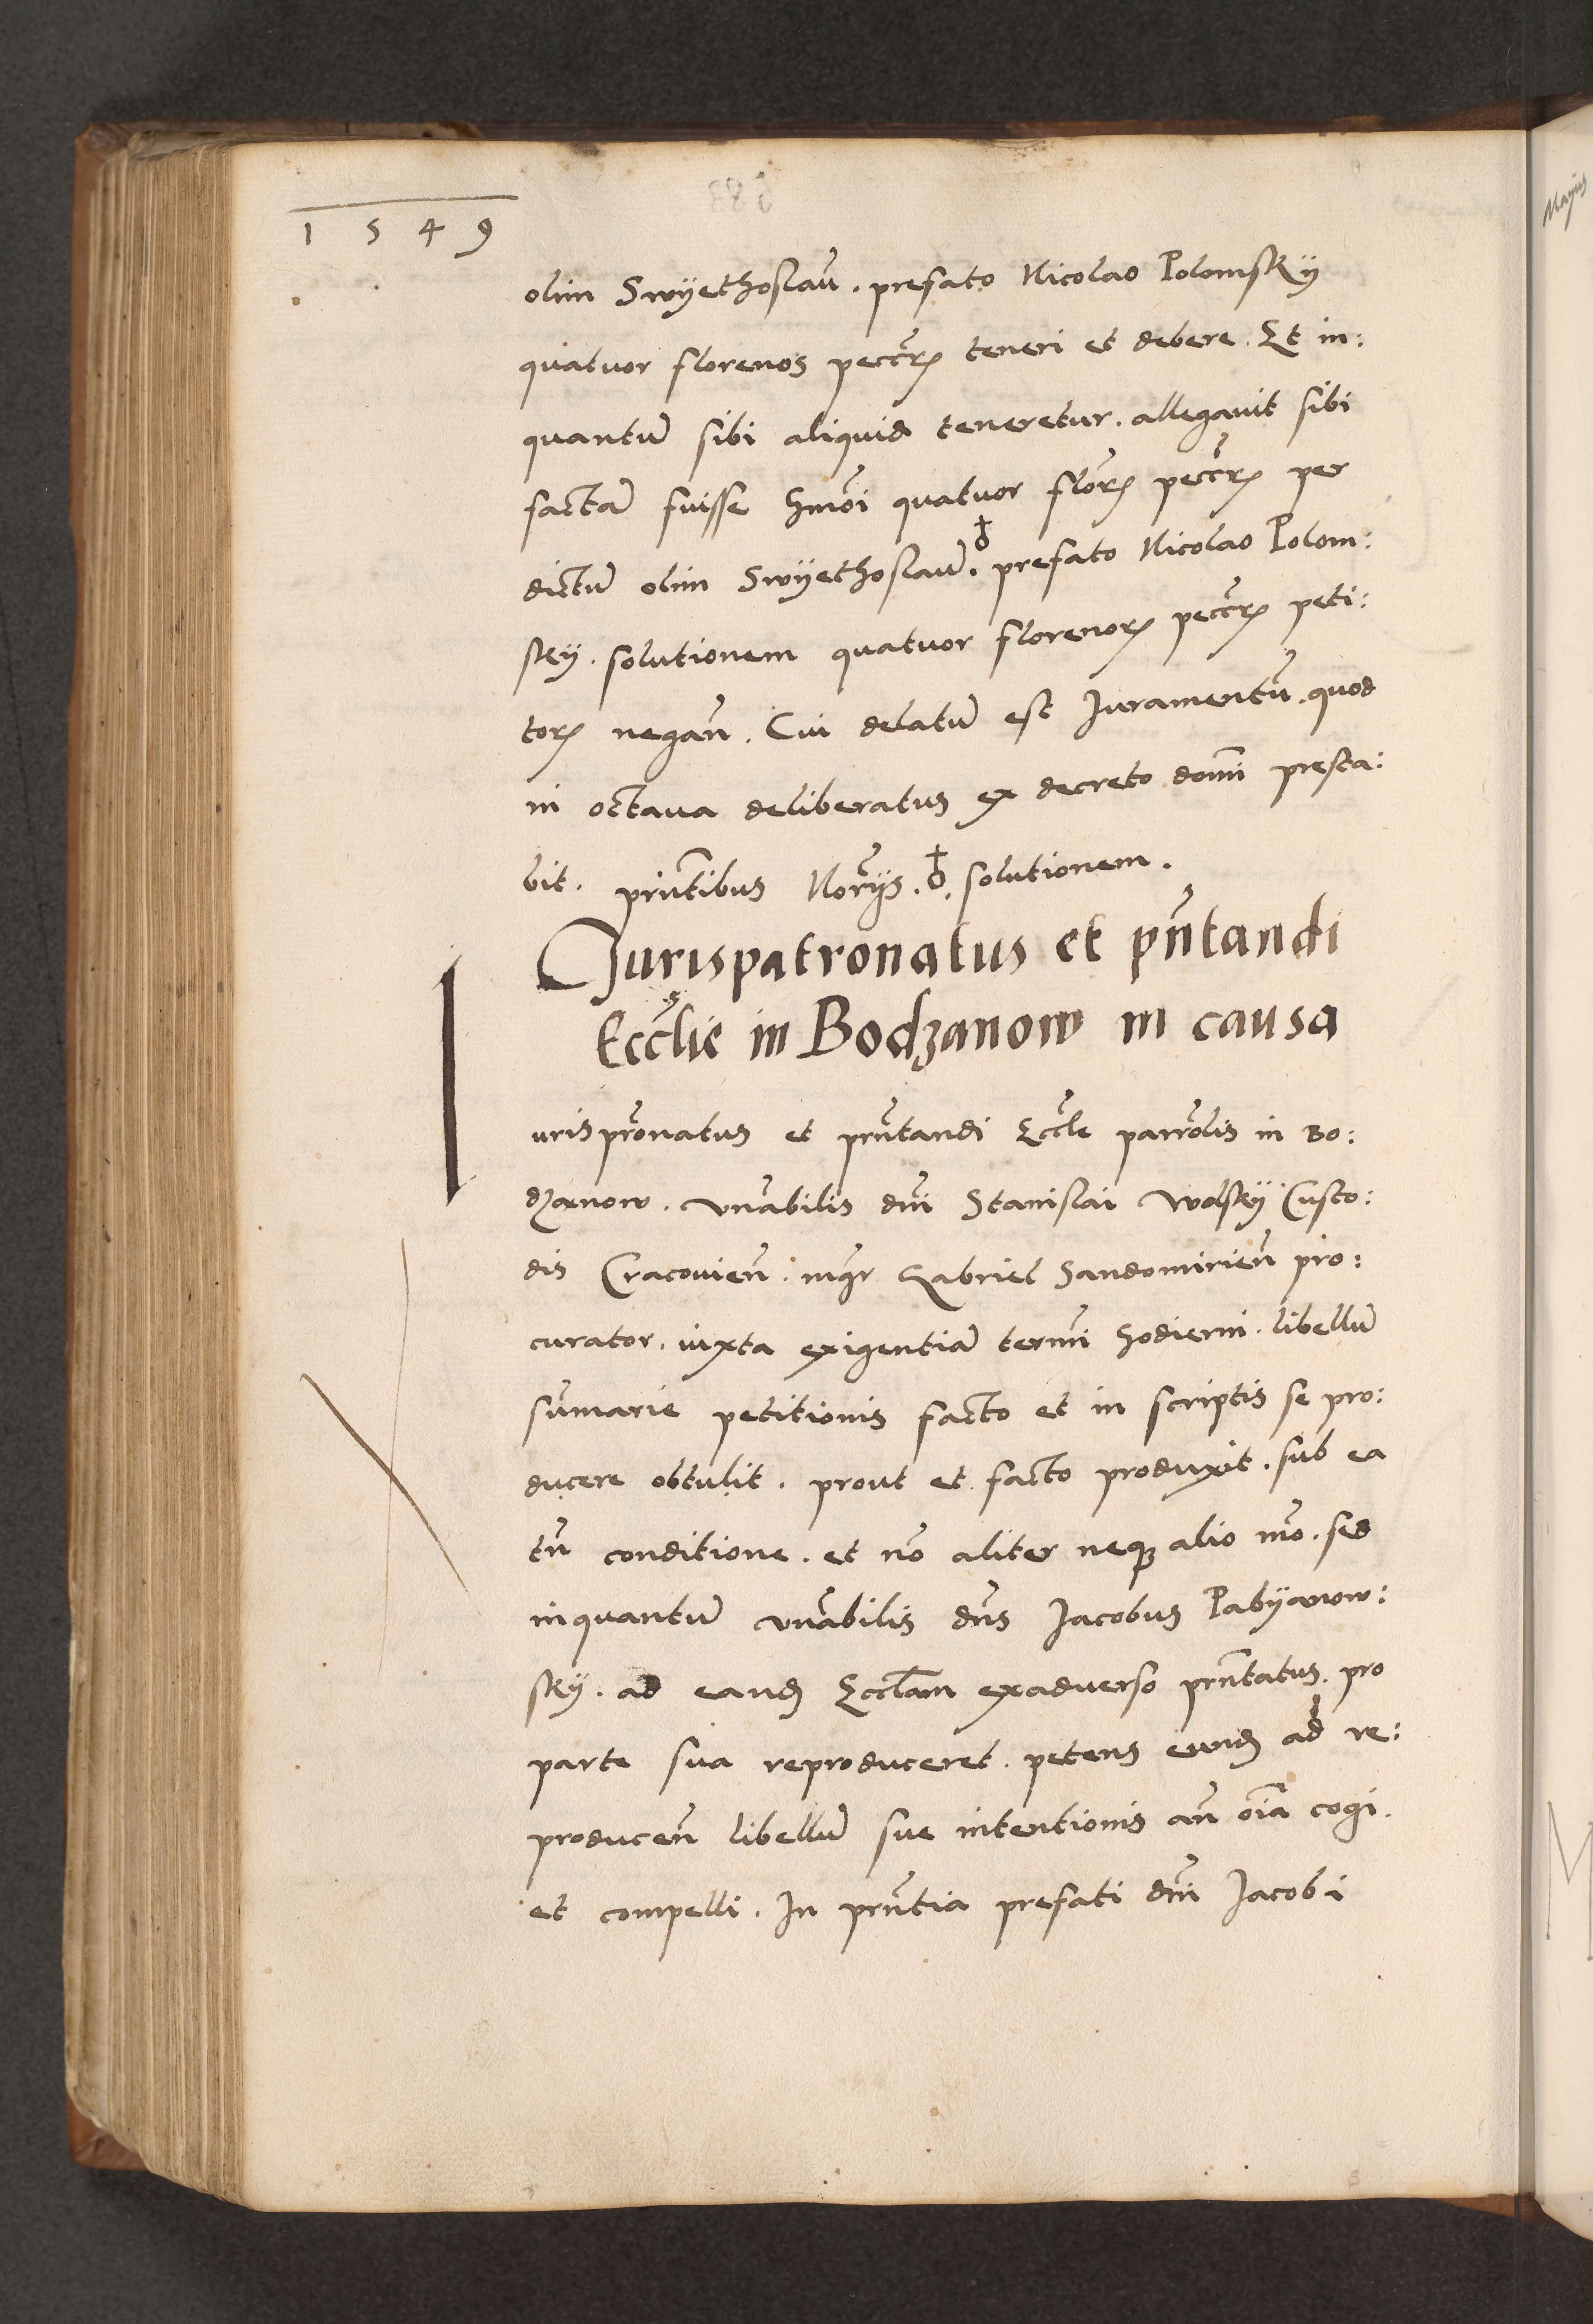 1549
olim Swyethoslaũ. prefato Nicolao Polomsky
quatuor florenos peccr͂ꝝ teneri et debere. Et in:
quantũ sibi aliquid teneretur. allegauit sibi
factã fuisse hmõi quatuor flõrꝝ peccr͂ꝝ per
dictũ olim Swyethoslaũ. prefato Nicolao Polom:
sky. solutionem quatuor florenorꝝ peccr͂ꝝ peti:
torꝝ negañ. Cui delatũ est Juramentũ. quod
in octaua deliberatus ex decreto domĩ presta:
bit. pñtibus Norĩjs. solutionem.
Jurispatronatus et pñtandi
Eccłie in Bodzanow in causa
Iurisprõnatus et pñtandi Eccłe parrõlis in Bo:
dzanow. vñabilis dñi Stanislai Wolsky Custo:
dis Cracovieñ. mgr Gabriel Sandomirieñ pro:
curator. iuxta exigentiã termĩ hodierni. libellũ
sũmarie petitionis facto et in scriptis se pro:
ducere obtulit. prout et facto produxit. sub ea
tñ conditione. et nõ aliter neqꝫ alio mõ. sed
inquantũ vñabilis dñs Jacobus Pabyanow:
sky. ad eandꝫ Eccłiam exaduerso pñtatus. pro
parte sua reproduceret. petens eundꝫ ad re:
produceñ libellũ sue intentionis añ oĩa cogi.
et compelli. In pñtia prefati dñi Jacobi